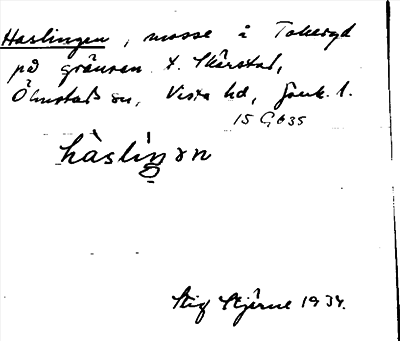 Haslingen, mosse i Tokeryd
på gränsen t. Skärstad,
Ölmstads sn, Vista hd, Jönk. l.
15 G 635
hàslíŋən
Stig Stjärne 1934.